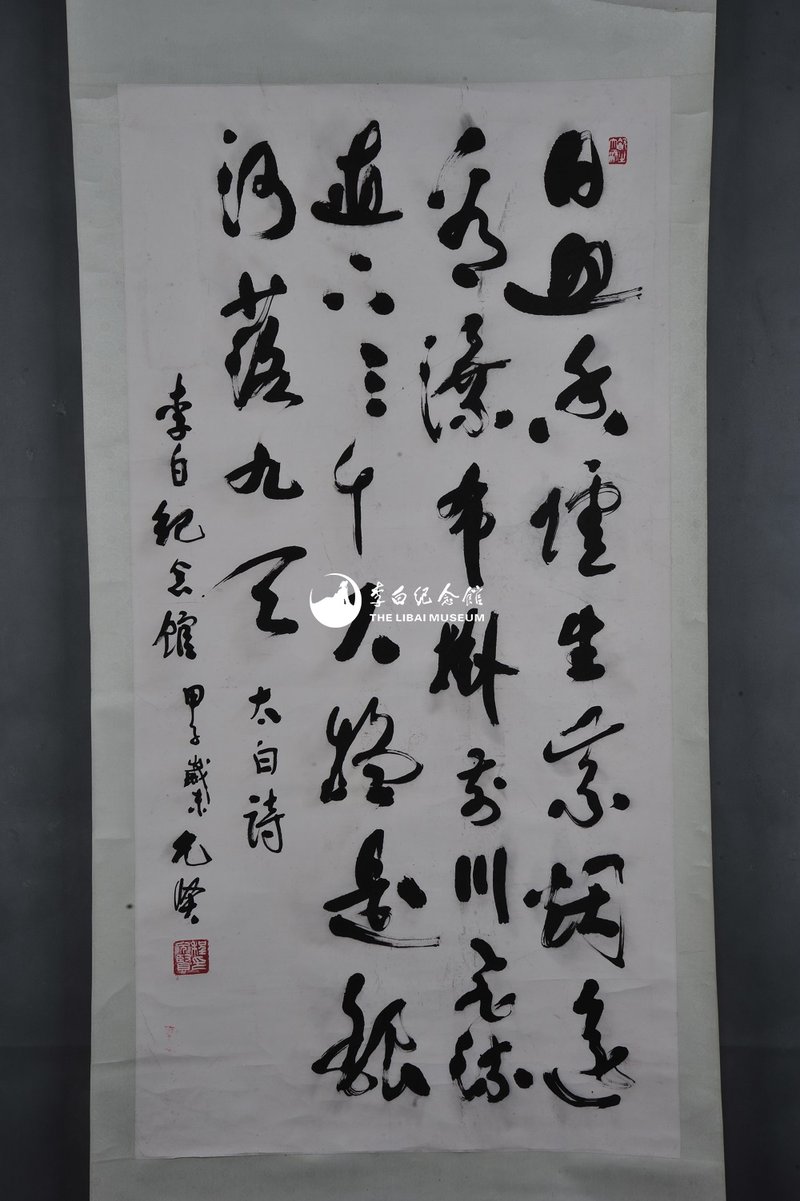 日照香爐生紫烟遥
看瀑布掛前川飛流
直下三千尺疑是銀
河落九天
太白詩
李白紀念館 甲子歲末 允賢
程印允賢
李白纪念館
THE LIBAI MUSEUM